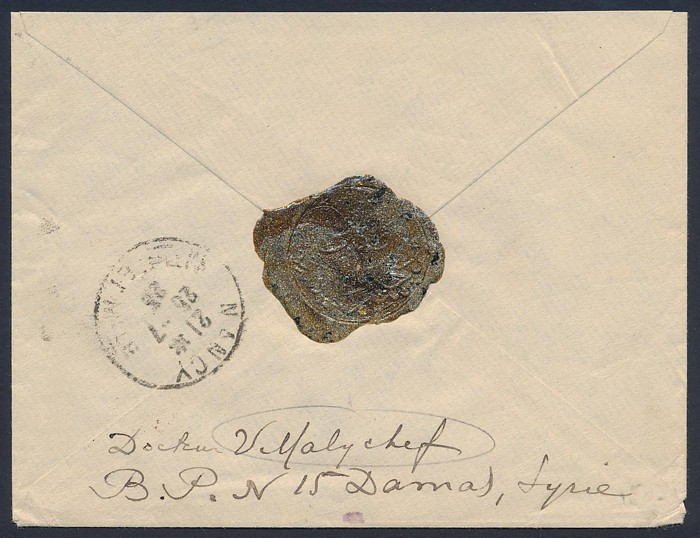 NANCY
21 *
20 - 7
35
Docteur V. Malychef
B. P. N 15 Damas, Syrie